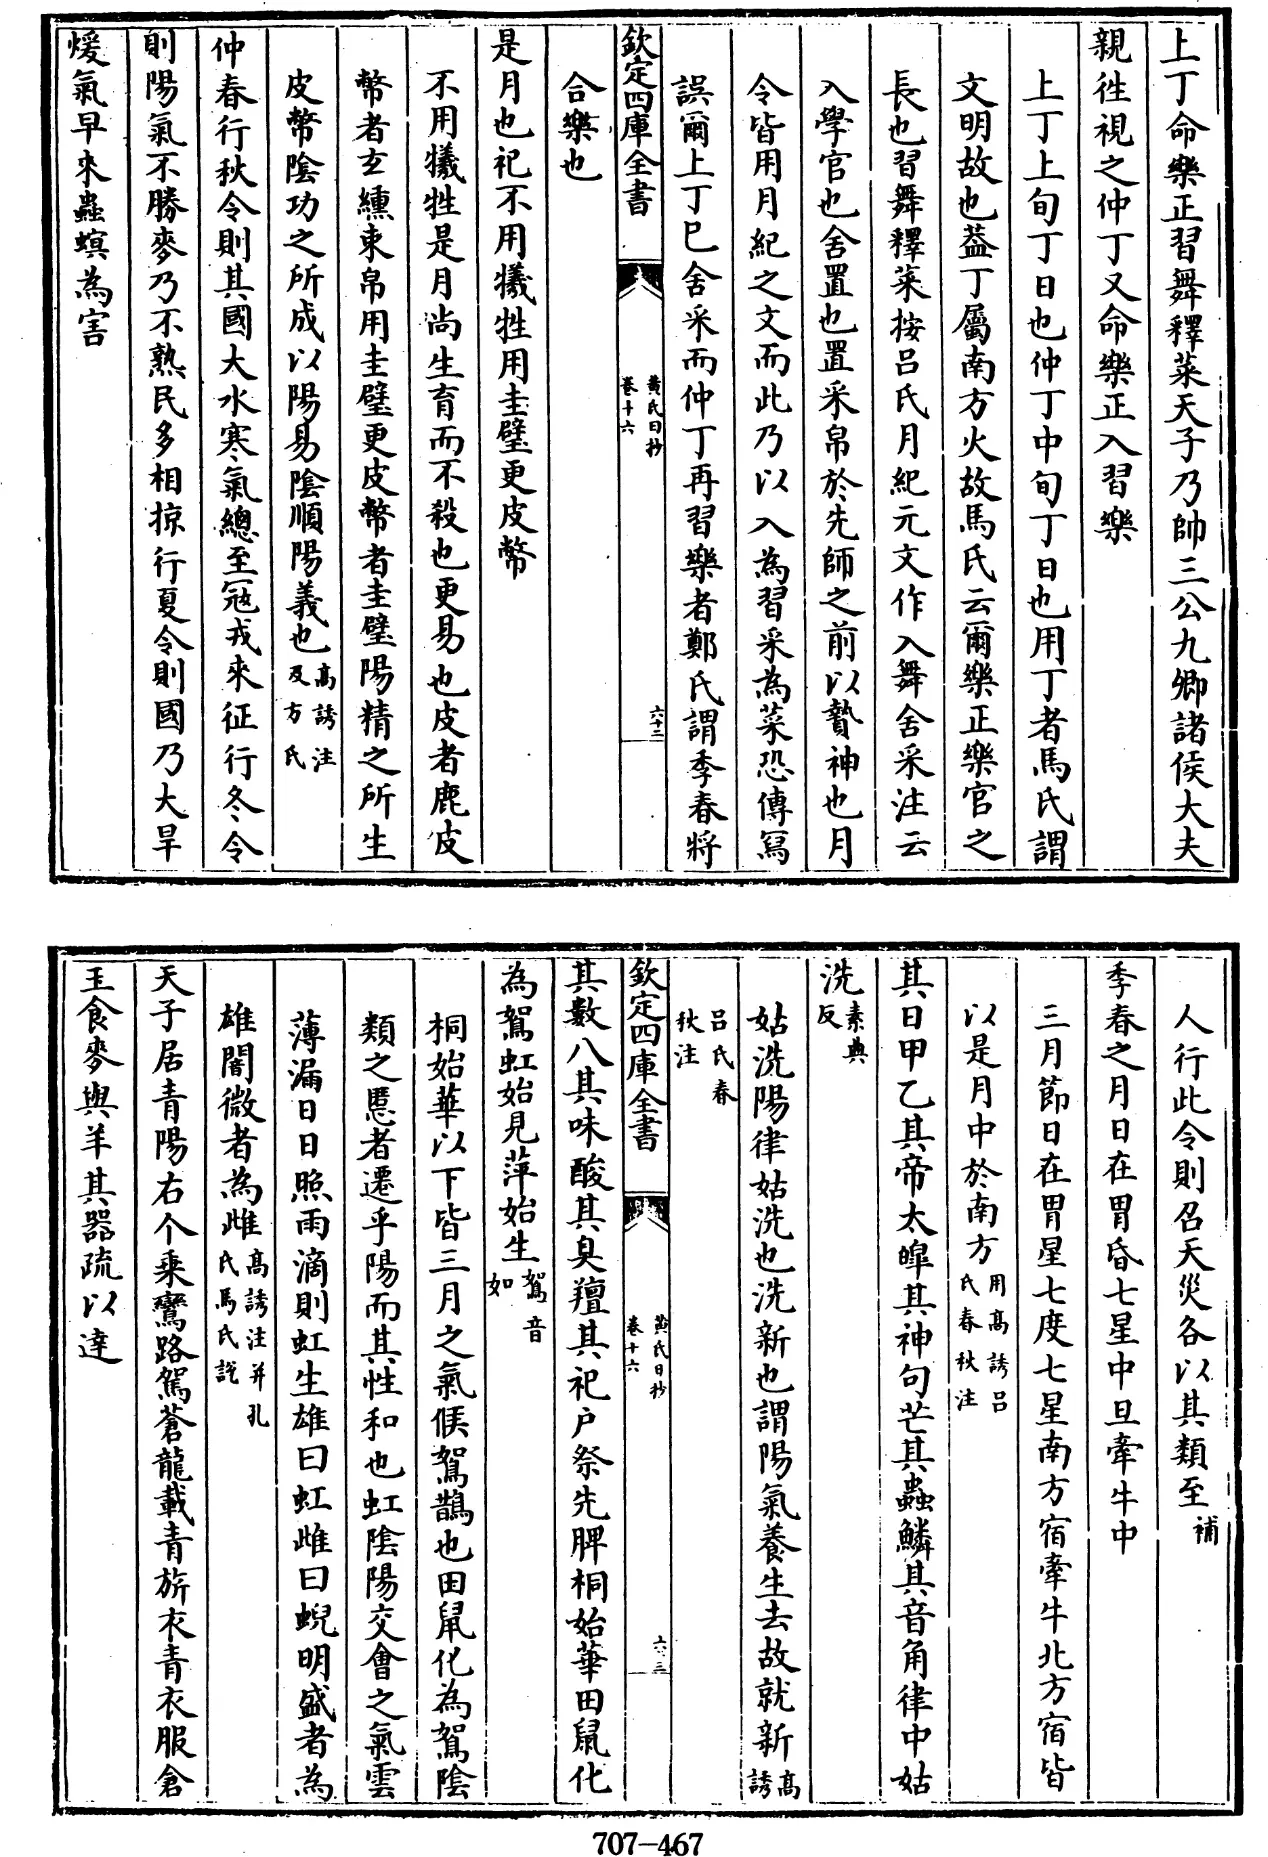 上丁命樂正習舞釋菜天子乃帥三公九卿諸侯大夫
親徃視之仲丁又命樂正入習樂
上丁上旬丁日也仲丁中旬丁日也用丁者馬氏謂
文明故也葢丁屬南方火故馬氏云爾樂正樂官之
長也習舞釋菜按呂氏月紀元文作入舞舍采注云
入學官也舍置也置采帛於先師之前以贄神也月
令皆用月紀之文而此乃以入為習采為菜恐傳寫
誤爾上丁巳舍采而仲丁再習樂者鄭氏謂季春將
欽定四庫全書
黃氏日抄
卷十六
六十二
合樂也
是月也祀不用犧牲用圭璧更皮幣
不用犧牲是月尚生育而不殺也更易也皮者鹿皮
幣者玄纁束帛用圭璧更皮幣者圭璧陽精之所生
皮幣陰功之所成以陽易陰順陽義也高誘注
及方氏
仲春行秋令則其國大水寒氣總至冦戎來征行冬令
則陽氣不勝麥乃不熟民多相掠行夏令則國乃大旱
煖氣早來蟲螟為害
人行此令則召天災各以其類至補
季春之月日在胃昏七星中旦牽牛中
三月節日在胃星七度七星南方宿牽牛北方宿皆
以是月中於南方用高誘呂
氏春秋注
其日甲乙其帝太皥其神句芒其蟲鱗其音角律中姑
洗素典
反
姑洗陽律姑洗也洗新也謂陽氣養生去故就新高
誘
呂氏春
秋注
欽定四庫全書
黃氏日抄
卷十六
六十三
其數八其味酸其臭羶其祀户祭先脾桐始華田鼠化
為鴽虹始見萍始生鴽音
如
桐始華以下皆三月之氣候鴽鵲也田鼠化為鴽陰
類之慝者遷乎陽而其性和也虹陰陽交會之氣雲
薄漏日日照雨滴則虹生雄曰虹雌曰蜺明盛者為
雄闇微者為雌高誘注并孔
氏馬氏說
天子居青陽右个乘鸞路駕蒼龍載青旂衣青衣服倉
玉食麥與羊其器疏以達
707-467